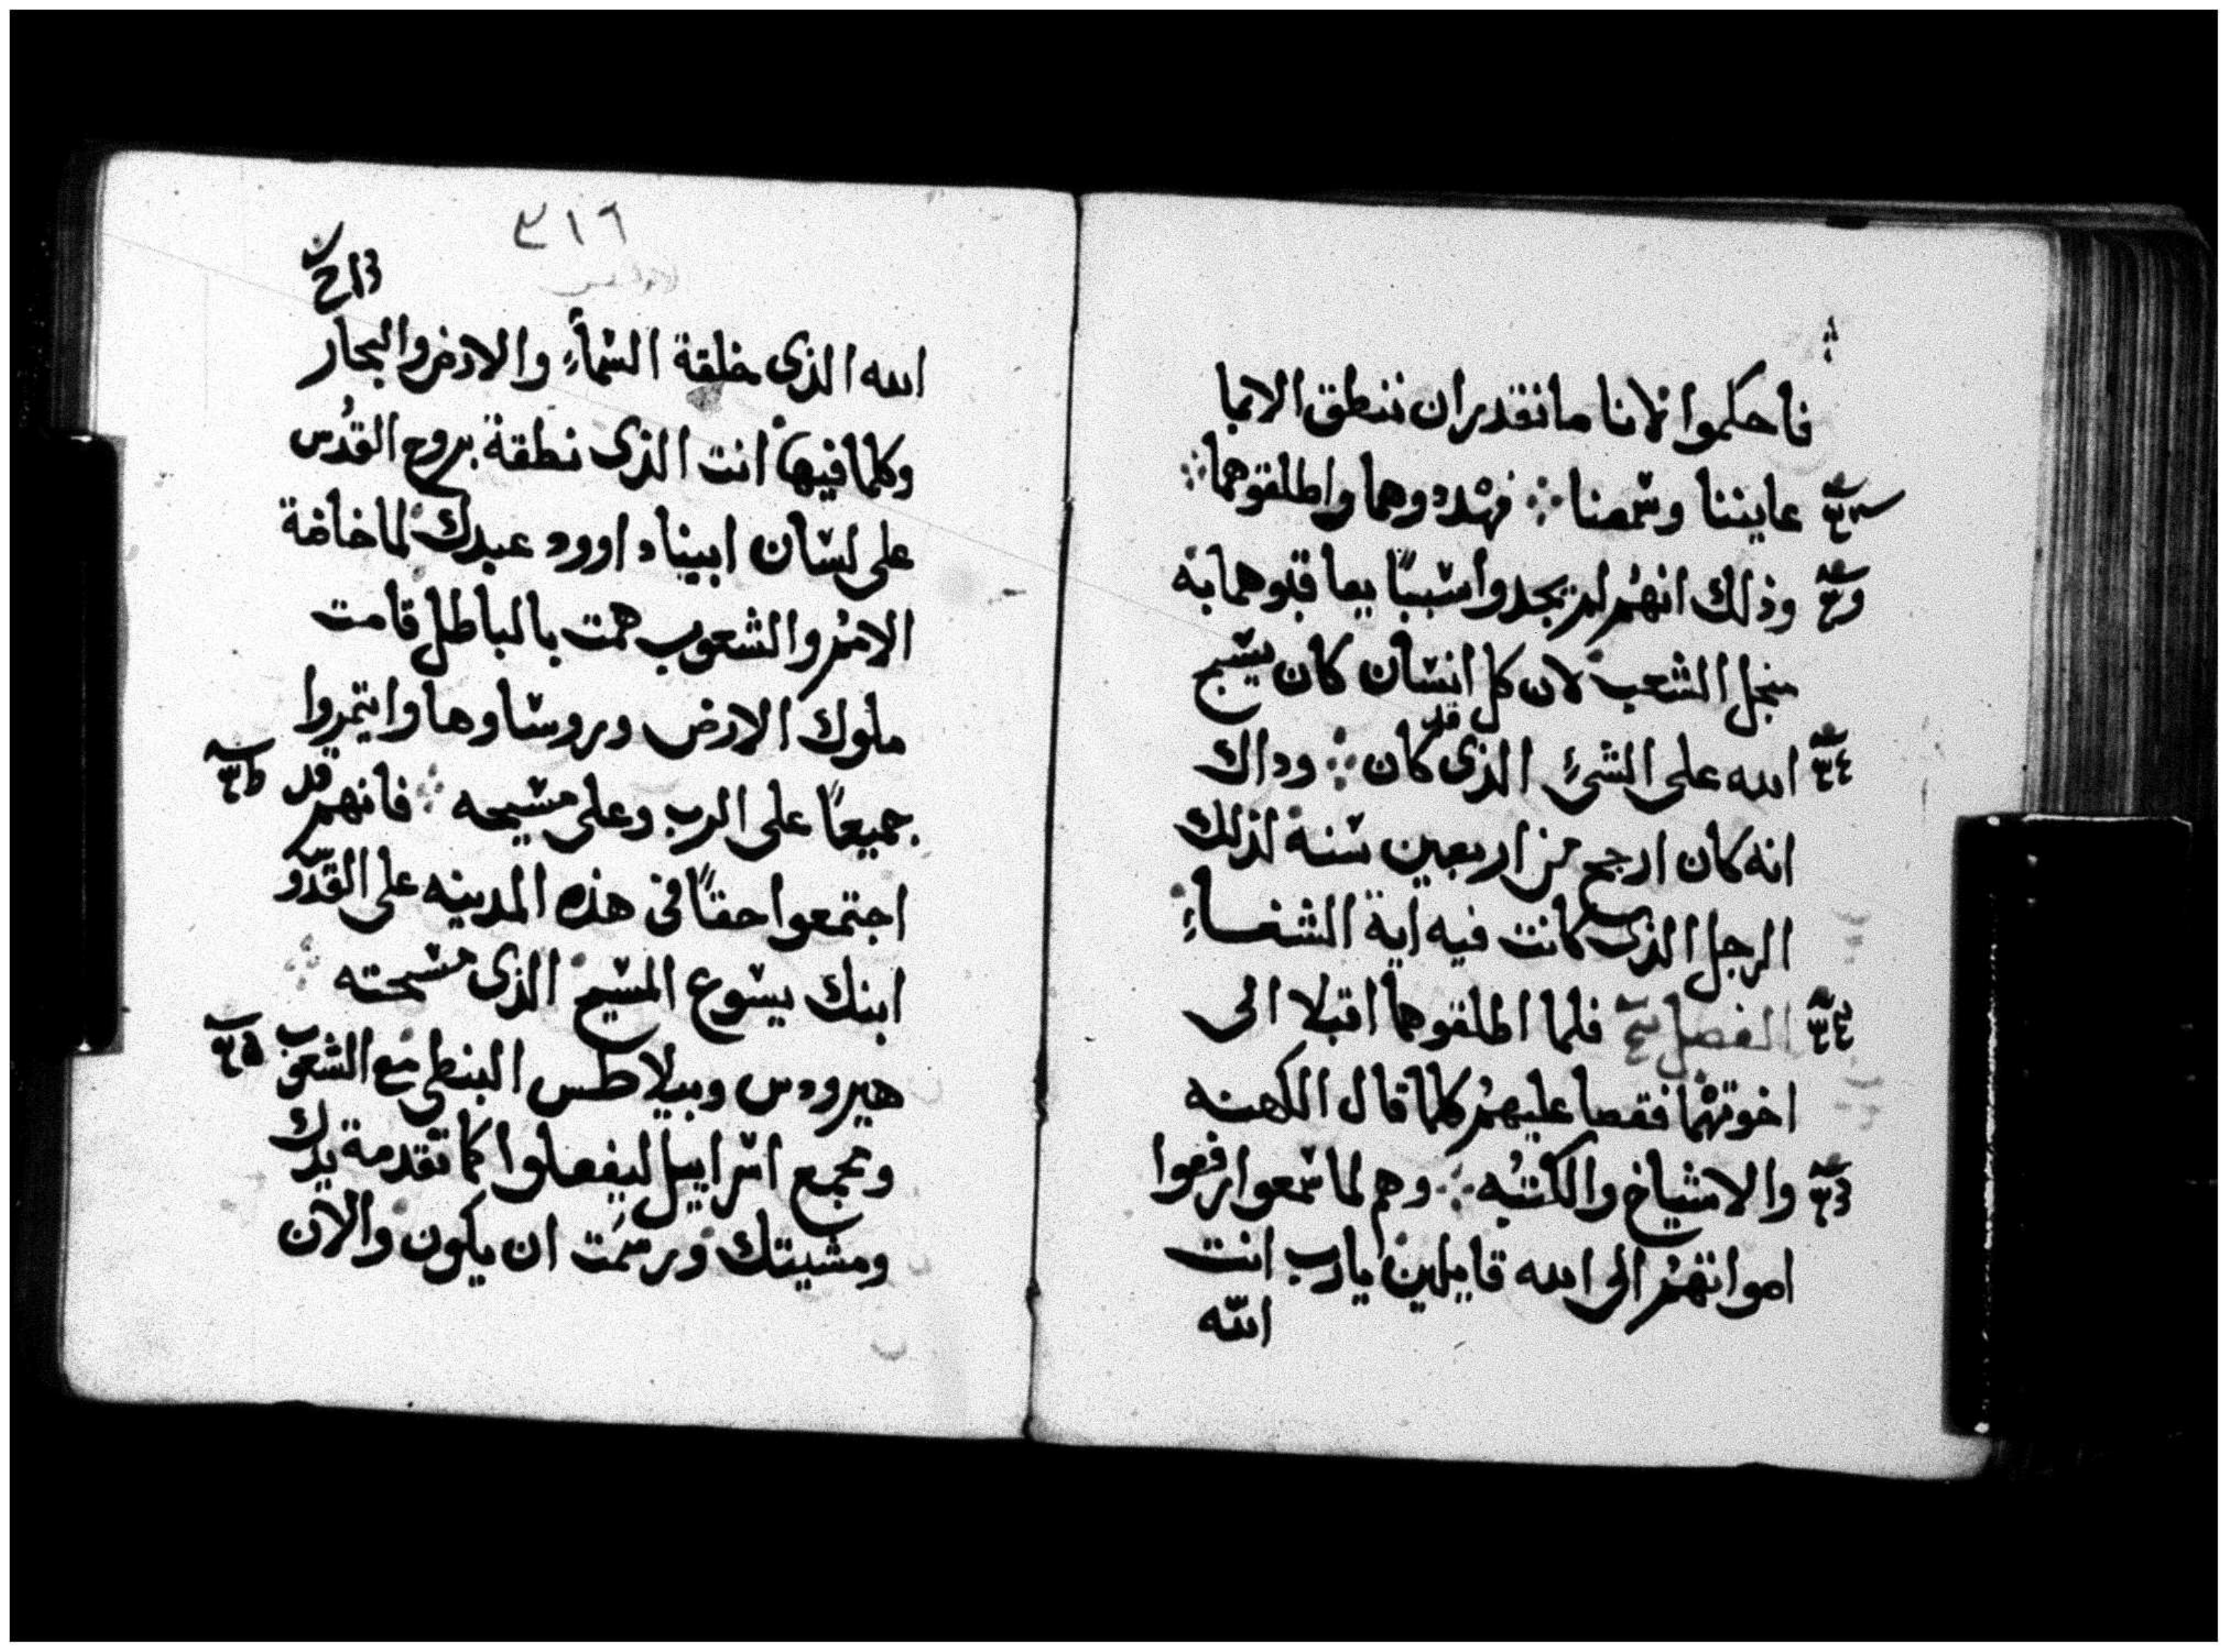 فاحكموا لانا ما نقدر ان ننطق الا بما
عاينا وسمعنا ⁘ فهددوهما واطلقوهما ⁘
وذلك انهم لم يجدوا سببًا يعاقبوهما به
منجل الشعب لان كل انسان كان يسبح
الله على الشئ الذى قد كان ⁘ وداك
انه كان ارجح من اربعين سنة لذلك
الرجل الذى كانت فيه اية الشفاء
الفصل فلما اطلقوهما اقبلا الى
اخوتهما فقصا عليهم كلما قال الكهنه
والاشياخ والكتبه ⁘ وهم لما سمعوا رفعوا
اصواتهم الى الله قايلين يارب انت
الله
٣١٦
الله الذى خلقة السماء والارض والبحار
وكلما فيها انت الذى نطقة بروح القدُس
على لسان ابينا داوود عبدك لما خافة
الامم والشعوب همت بالباطل قامت
ملوك الارض وروساوها وايتمروا
جميعًا على الرب وعلى مسيحه ⁘ فانهم قد
اجتمعوا حقًا فى هذه المدينه على القدّو
ابنك يسوع المسيح الذى مسحته ⁘
هيرودس وبيلاطس البنطى مع الشعوب
وتجمع اسراييل ليفعلوا كما تقدمة يدك
ومشيتك ورسمت ان يكون والان